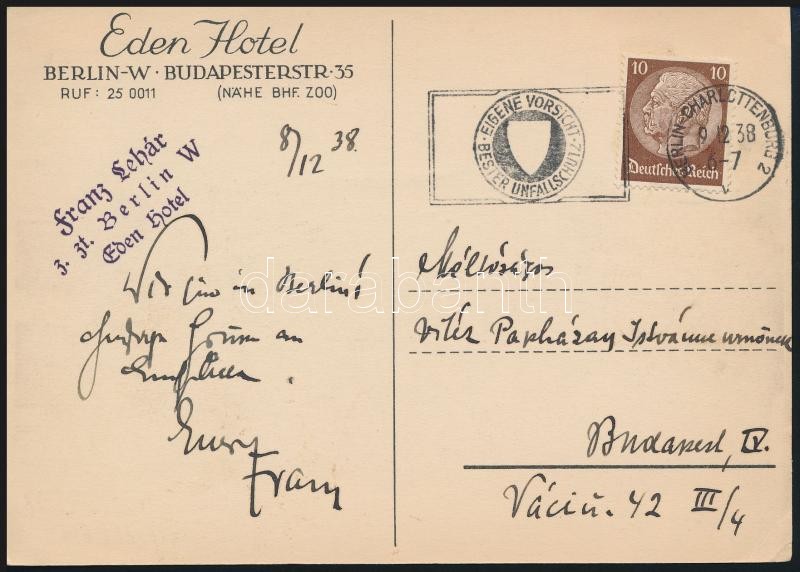 Eden Hotel
BERLIN-W · BUDAPESTERSTR · 35
RUF: 25 0011 (NÄHE BHF. ZOO)
8/12 38.
Franz Lehár
z. Zt. Berlin W
Eden Hotel
Wir sind in Berlin!
an
Euer
Franz
10 10
Deutsches Reich
EIGENE VORSICHT · BESTER UNFALLSCHUTZ ·
BERLIN-CHARLOTTENBURG 2
9.12.38
6-7
Méltóságos
Vitéz Papházay Istvánné urnőnek
Budapest, IV.
Váci u. 42 III/4
darabanth